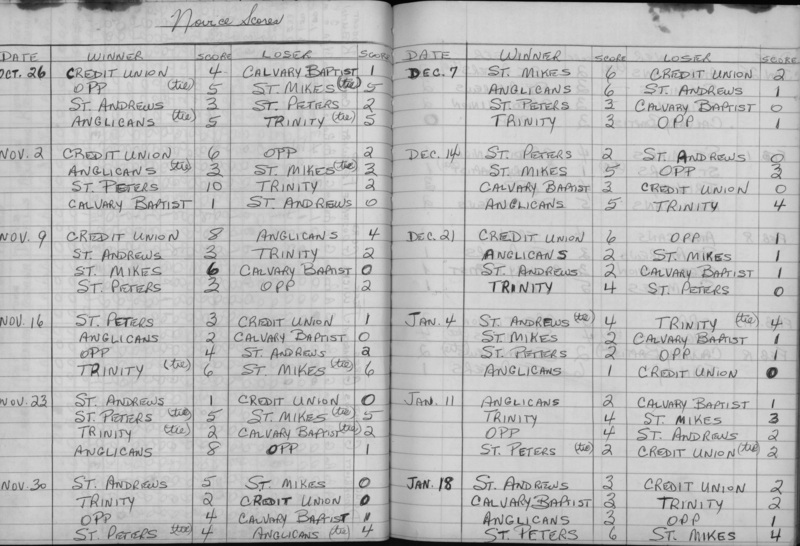 Novice Scores
DATE WINNER SCORE LOSER SCORE
OCT. 26 CREDIT UNION 4 CALVARY BAPTIST 1
OPP (tie) 5 ST. MIKES (tie) 5
ST. ANDREWS 3 ST. PETERS 2
ANGLICANS (tie) 5 TRINITY (tie) 5
NOV. 2 CREDIT UNION 6 OPP 2
ANGLICANS (tie) 3 ST. MIKES (tie) 3
ST. PETERS 10 TRINITY 2
CALVARY BAPTIST 1 ST. ANDREWS 0
NOV. 9 CREDIT UNION 8 ANGLICANS 4
ST. ANDREWS 3 TRINITY 2
ST. MIKES 6 CALVARY BAPTIST 0
ST. PETERS 3 OPP 2
NOV. 16 ST. PETERS 3 CREDIT UNION 1
ANGLICANS 2 CALVARY BAPTIST 0
OPP 4 ST. ANDREWS 2
TRINITY (tie) 6 ST. MIKES (tie) 6
NOV. 23 ST. ANDREWS 1 CREDIT UNION 0
ST. PETERS (tie) 5 ST. MIKES (tie) 5
TRINITY (tie) 2 CALVARY BAPTIST (tie) 2
ANGLICANS 8 OPP 1
NOV. 30 ST. ANDREWS 5 ST. MIKES 0
TRINITY 2 CREDIT UNION 0
OPP 4 CALVARY BAPTIST 1
ST. PETERS (tie) 4 ANGLICANS (tie) 4
DATE WINNER SCORE LOSER SCORE
DEC. 7 ST. MIKES 6 CREDIT UNION 2
ANGLICANS 6 ST. ANDREWS 1
ST. PETERS 3 CALVARY BAPTIST 0
TRINITY 3 OPP 1
DEC. 14 ST. PETERS 2 ST. ANDREWS 0
ST. MIKES 5 OPP 3
CALVARY BAPTIST 3 CREDIT UNION 0
ANGLICANS 5 TRINITY 4
DEC. 21 CREDIT UNION 6 OPP 1
ANGLICANS 2 ST. MIKES 1
ST. ANDREWS 2 CALVARY BAPTIST 1
TRINITY 4 ST. PETERS 0
JAN. 4 ST. ANDREWS (tie) 4 TRINITY (tie) 4
ST. MIKES 2 CALVARY BAPTIST 1
ST. PETERS 2 OPP 1
ANGLICANS 1 CREDIT UNION 0
JAN. 11 ANGLICANS 2 CALVARY BAPTIST 1
TRINITY 4 ST. MIKES 3
OPP 4 ST. ANDREWS 2
ST. PETERS (tie) 2 CREDIT UNION (tie) 2
JAN. 18 ST. ANDREWS 3 CREDIT UNION 2
CALVARY BAPTIST 3 TRINITY 2
ANGLICANS 3 OPP 1
ST. PETERS 6 ST. MIKES 4